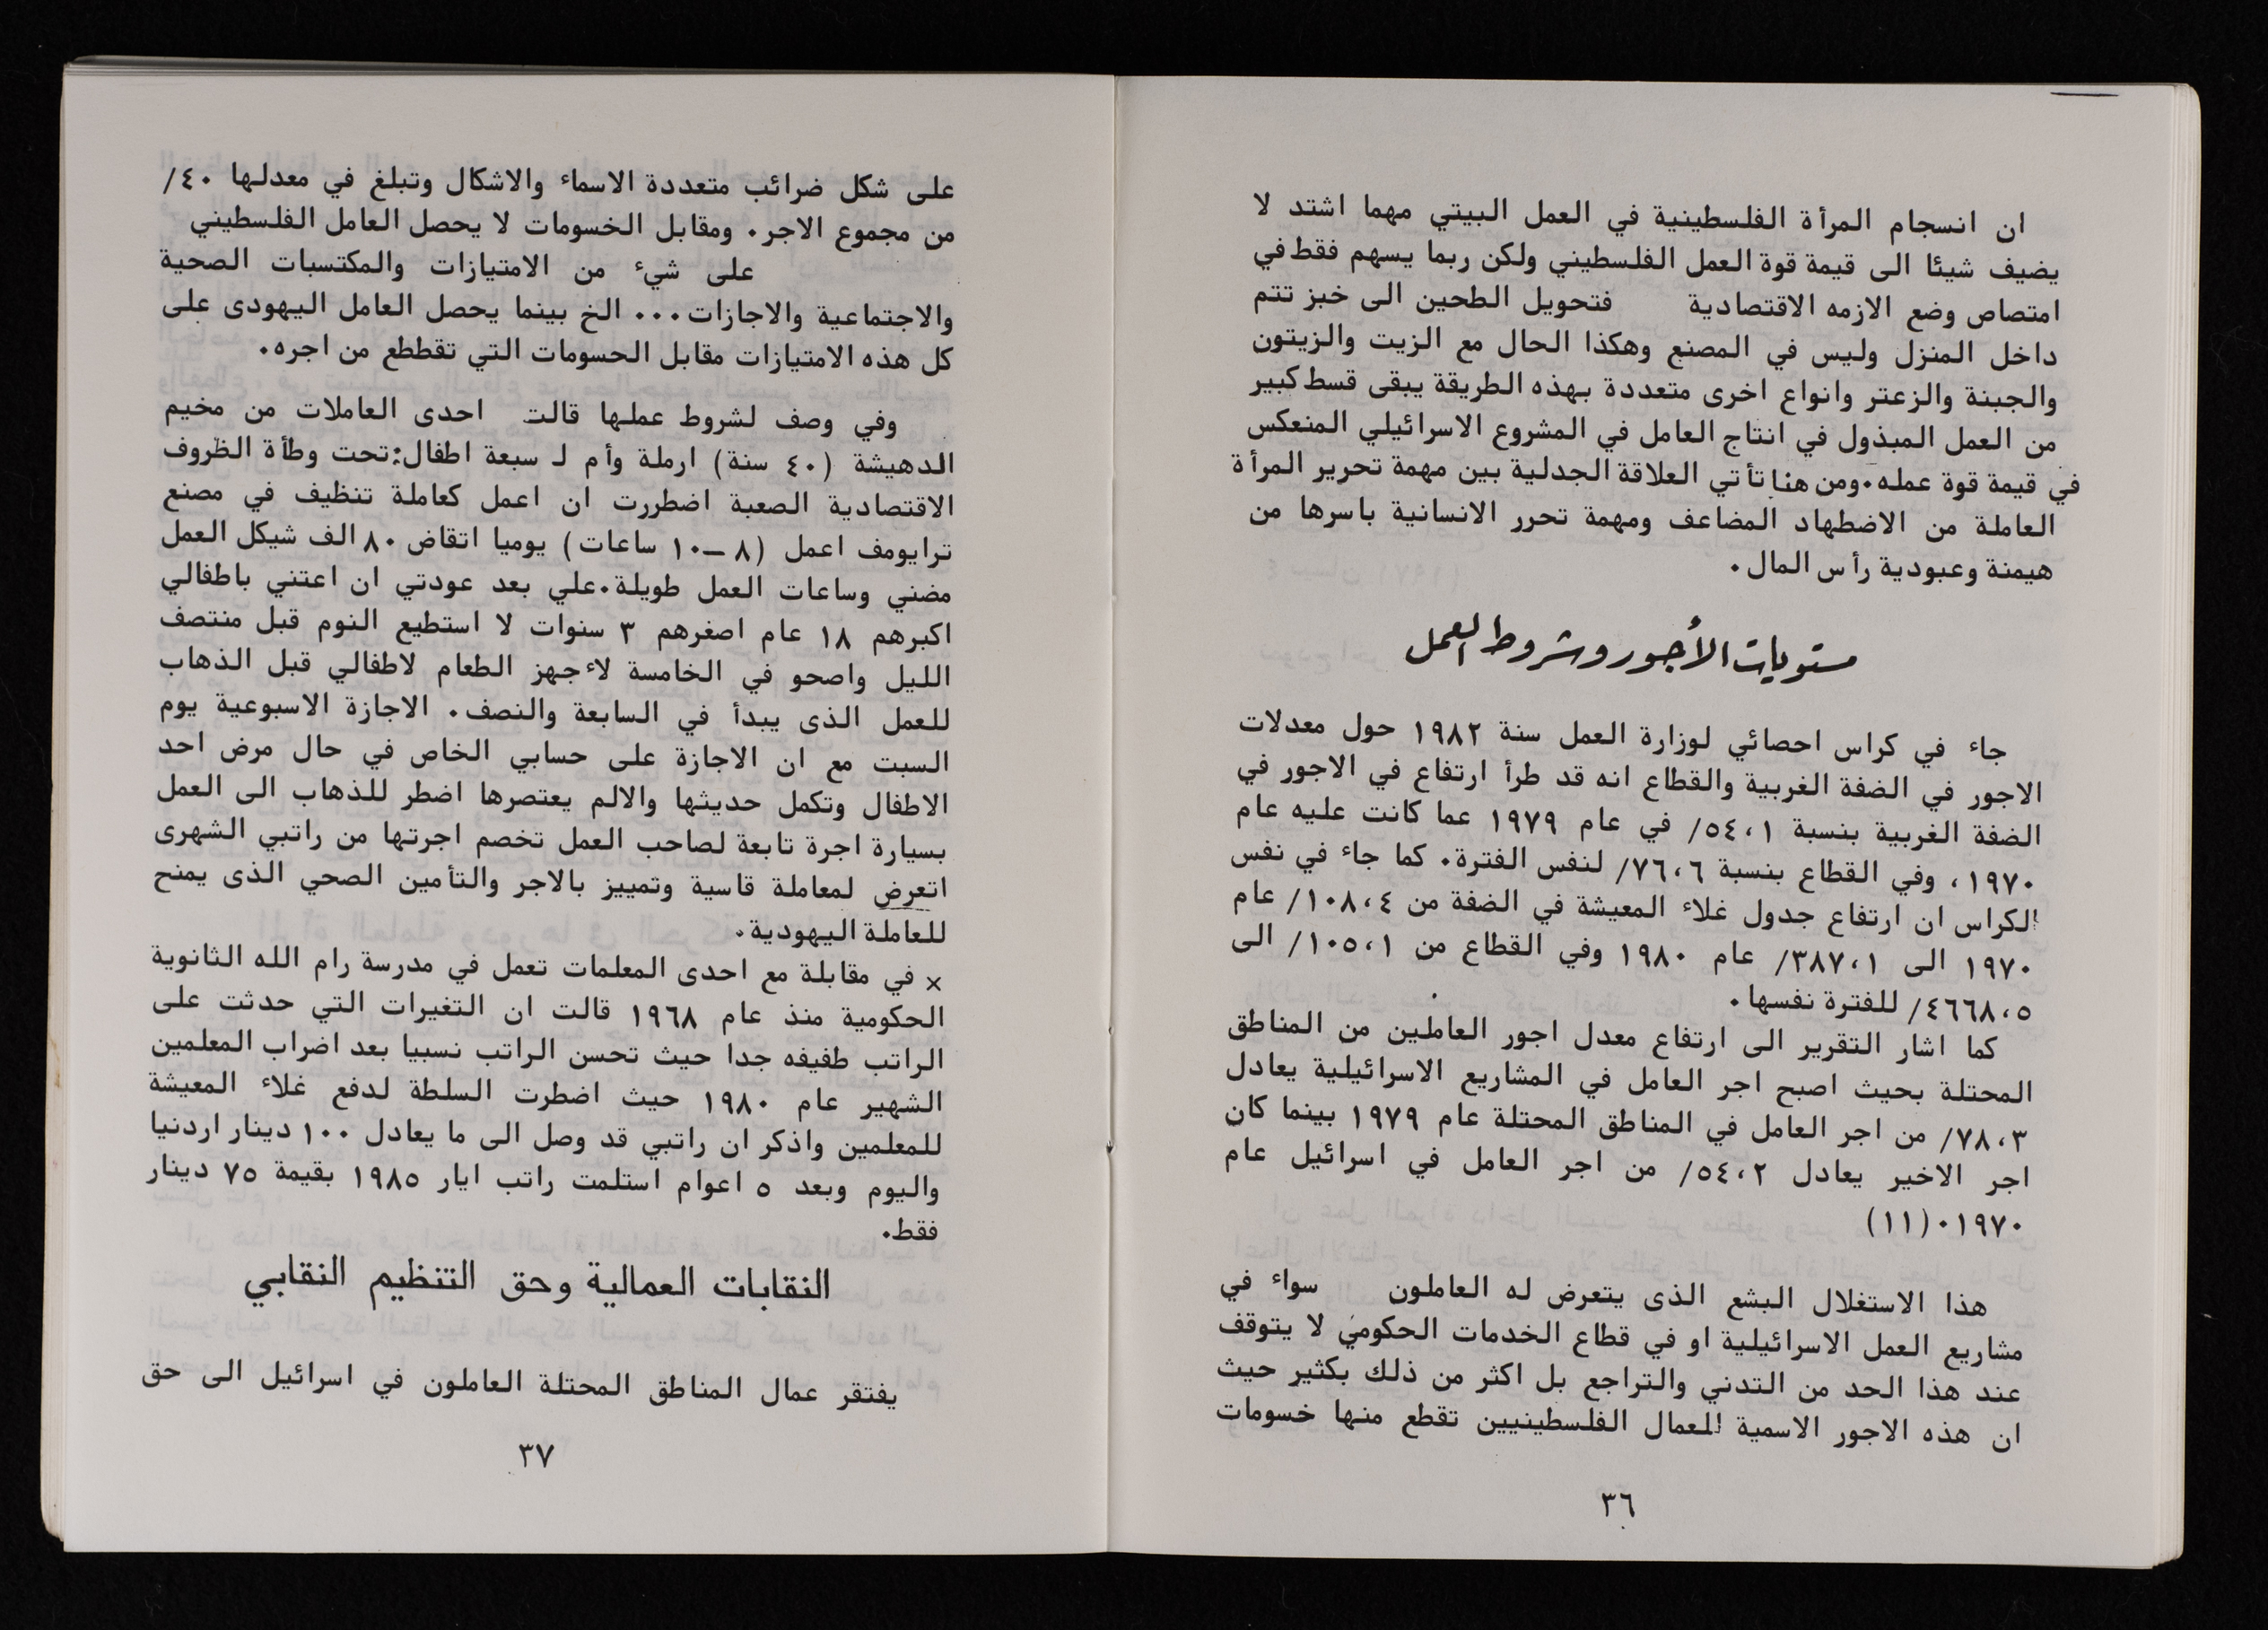 ان انسجام المرأة الفلسطينية في العمل البيتي مهما اشتد لا
يضيف شيئا الى قيمة قوة العمل الفلسطيني ولكن ربما يسهم فقط في
امتصاص وضع الازمه الاقتصادية فتحويل الطحين الى خبز تتم
داخل المنزل وليس في المصنع وهكذا الحال مع الزيت والزيتون
والجبنة والزعتر وانواع اخرى متعددة بهذه الطريقة يبقى قسط كبير
من العمل المبذول في انتاج العامل في المشروع الاسرائيلي المنعكس
في قيمة قوة عمله. ومن هنا تأتي العلاقة الجدلية بين مهمة تحرير المرأة
العاملة من الاضطهاد المضاعف ومهمة تحرر الانسانية باسرها من
هيمنة وعبودية رأس المال.
مستويات الأجور وشروط العمل
جاء في كراس احصائي لوزارة العمل سنة ١٩٨٢ حول معدلات
الاجور في الضفة الغربية والقطاع انه قد طرأ ارتفاع في الاجور في
الضفة الغربية بنسبة ٥٤،١/ في عام ١٩٧٩ عما كانت عليه عام
١٩٧٠، وفي القطاع بنسبة ٧٦،٦/ لنفس الفترة. كما جاء في نفس
الكراس ان ارتفاع جدول غلاء المعيشة في الضفة من ١٠٨،٤/ عام
١٩٧٠ الى ٣٨٧،١/ عام ١٩٨٠ وفي القطاع من ١٠٥،١/ الى
٤٦٦٨،٥/ للفترة نفسها.
كما اشار التقرير الى ارتفاع معدل اجور العاملين من المناطق
المحتلة بحيث اصبح اجر العامل في المشاريع الاسرائيلية يعادل
٧٨،٣/ من اجر العامل في المناطق المحتلة عام ١٩٧٩ بينما كان
اجر الاخير يعادل ٥٤،٢/ من اجر العامل في اسرائيل عام
١٩٧٠. (١١)
هذا الاستغلال البشع الذى يتعرض له العاملون سواء في
مشاريع العمل الاسرائيلية او في قطاع الخدمات الحكومي لا يتوقف
عند هذا الحد من التدني والتراجع بل اكثر من ذلك بكثير حيث
ان هذه الاجور الاسمية للعمال الفلسطينيين تقطع منها خسومات
٣٦
على شكل ضرائب متعددة الاسماء والاشكال وتبلغ في معدلها ٤٠/
من مجموع الاجر. ومقابل الخسومات لا يحصل العامل الفلسطيني
على شيء من الامتيازات والمكتسبات الصحية
والاجتماعية والاجازات... الخ بينما يحصل العامل اليهودى على
كل هذه الامتيازات مقابل الحسومات التي تقططع من اجره.
وفي وصف لشروط عملها قالت احدى العاملات من مخيم
الدهيشة (٤٠ سنة) ارملة وأم لـ سبعة اطفال: تحت وطأة الظروف
الاقتصادية الصعبة اضطررت ان اعمل كعاملة تنظيف في مصنع
ترايومف اعمل (٨ –١٠ ساعات) يوميا اتقاض ٨٠ الف شيكل العمل
مضني وساعات العمل طويلة. علي بعد عودتي ان اعتني باطفالي
اكبرهم ١٨ عام اصغرهم ٣ سنوات لا استطيع النوم قبل منتصف
الليل واصحو في الخامسة لاءجهز الطعام لاطفالي قبل الذهاب
للعمل الذى يبدأ في السابعة والنصف. الاجازة الاسبوعية يوم
السبت مع ان الاجازة على حسابي الخاص في حال مرض احد
الاطفال وتكمل حديثها والالم يعتصرها اضطر للذهاب الى العمل
بسيارة اجرة تابعة لصاحب العمل تخصم اجرتها من راتبي الشهرى
اتعرض لمعاملة قاسية وتمييز بالاجر والتأمين الصحي الذى يمنح
للعاملة اليهودية.
× في مقابلة مع احدى المعلمات تعمل في مدرسة رام الله الثانوية
الحكومية منذ عام ١٩٦٨ قالت ان التغيرات التي حدثت على
الراتب طفيفه جدا حيث تحسن الراتب نسبيا بعد اضراب المعلمين
الشهير عام ١٩٨٠ حيث اضطرت السلطة لدفع غلاء المعيشة
للمعلمين واذكر ان راتبي قد وصل الى ما يعادل ١٠٠ دينار اردنيا
واليوم وبعد ٥ اعوام استلمت راتب ايار ١٩٨٥ بقيمة ٧٥ دينار
فقط.
النقابات العمالية وحق التنظيم النقابي
يفتقر عمال المناطق المحتلة العاملون في اسرائيل الى حق
٣٧